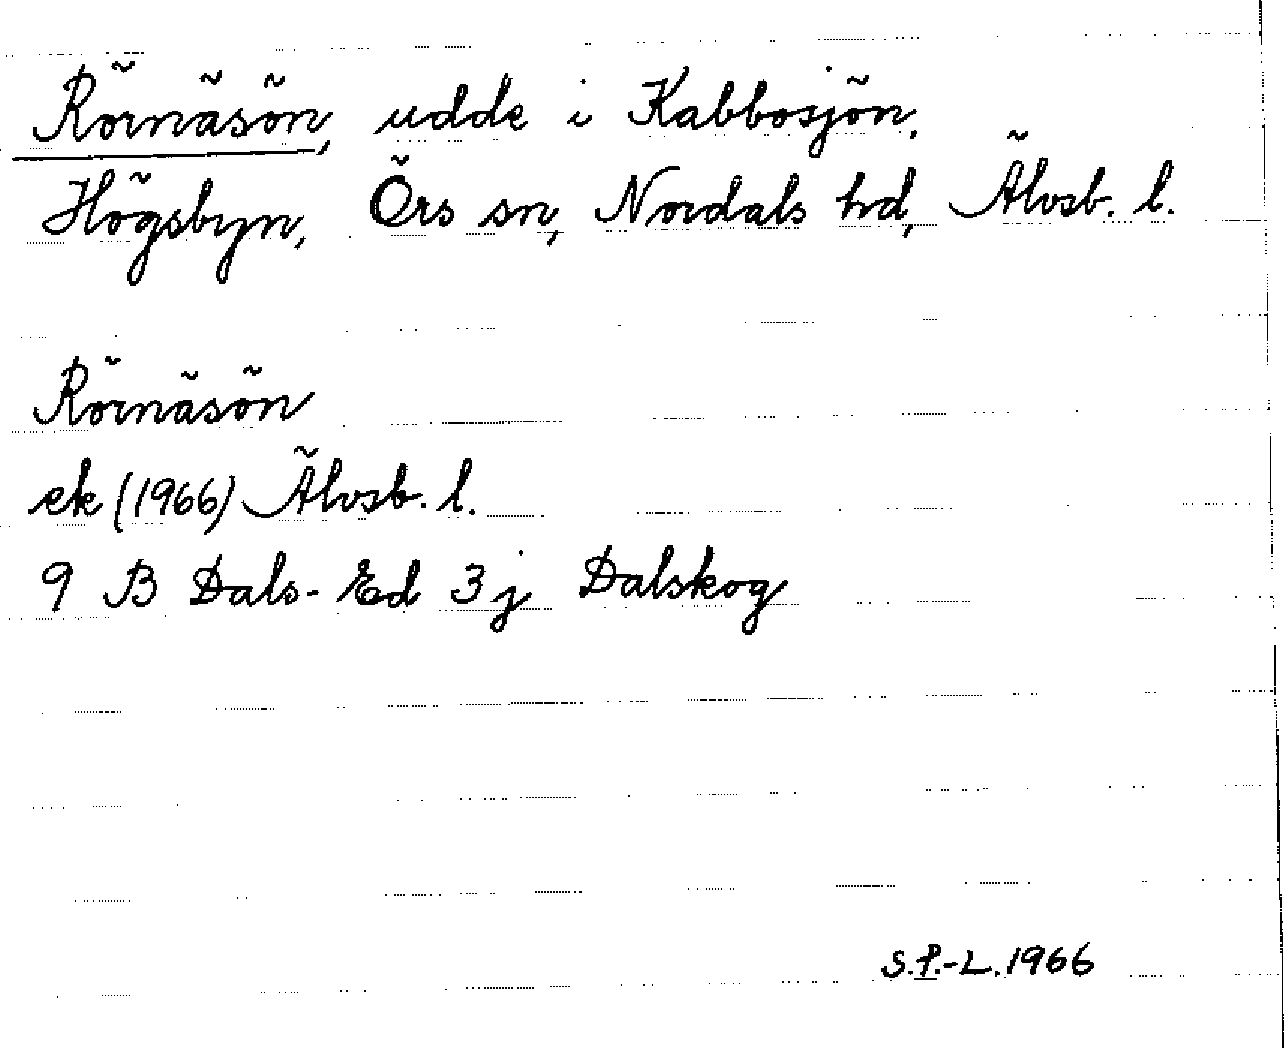 Rörnäsön, udde i Kabbosjön.
Högsbyn, Örs sn, Nordals hd, Älvsb. l.
Rörnäsön
ek (1966) Älvsb. l.
9 B Dals-Ed 3 j Dalskog
S.P.-L. 1966